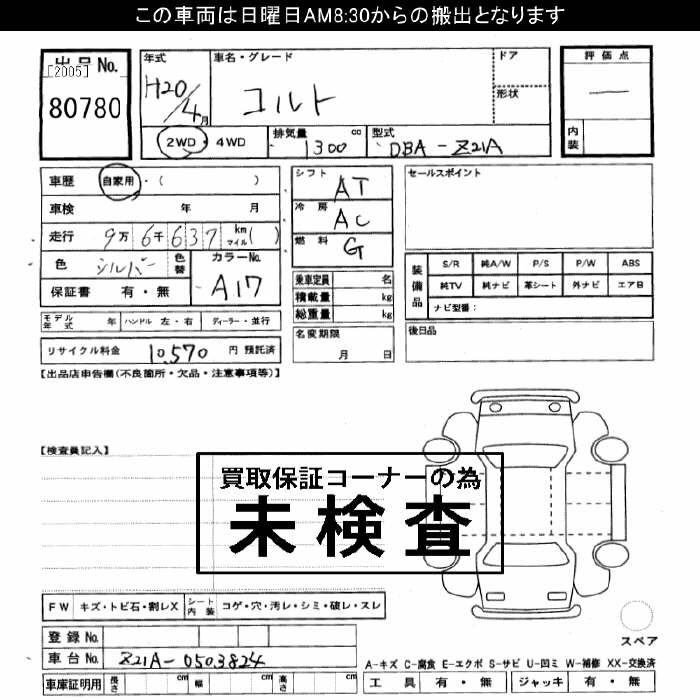 この車両は日曜日AM8:30からの搬出となります
出品No.
[2005]
80780
年式 H20/4月
車名・グレード コルト
ドア
形状
評価点 ー
内装
2WD・4WD
排気量 1300 cc
型式 DBA-Z21A
車歴 自家用・( )
車検 年 月
走行 9万6千637 km マイル( )
色 シルバー 色替
カラーNo. A17
保証書 有・無
モデル年式 年 ハンドル 左・右 ディーラー・並行
リサイクル料金 10,570 円 預託済
シフト AT
冷房 AC
燃料 G
乗車定員 名
積載量 kg
総重量 kg
名変期限
月 日
セールスポイント
装備品 S/R 純A/W P/S P/W ABS
純TV 純ナビ 革シート 外ナビ エアB
ナビ型番:
後日品
【出品店申告欄(不良箇所・欠品・注意事項等)】
【検査員記入】
買取保証コーナーの為
未検査
FW キズ・トビ石・割レX シート内装 コゲ・穴・汚レ・シミ・破レ・スレ
スペア
登録No.
車台No. Z21A-0503824
車庫証明用 長さ cm 幅 cm 高さ cm
A-キズ C-腐食 E-エクボ S-サビ U-凹ミ W-補修 XX-交換済
工具 有・無 ジャッキ 有・無